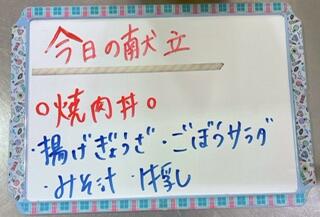 今日の献立
○焼肉丼○
・揚げぎょうざ・ごぼうサラダ
・みそ汁・牛乳